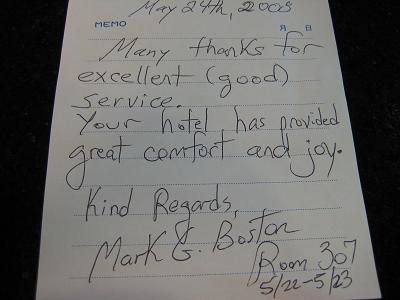 May 24th, 2008
MEMO 月 日
Many thanks for
excellent (good)
service.
Your hotel has provided
great comfort and joy.
Kind Regards,
Mark G. Boston
Room 307
5/22-5/23